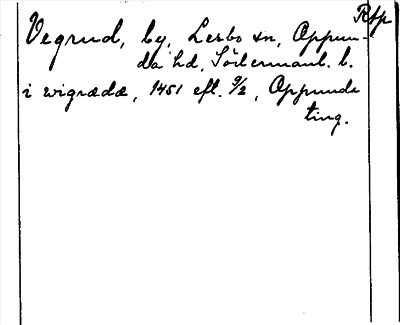 Rtp
Vegrud, by, Lerbo sn, Oppun-
da hd, Södermanl. l.
i wigrædæ, 1451 eft. 9/2, Oppunda
ting.